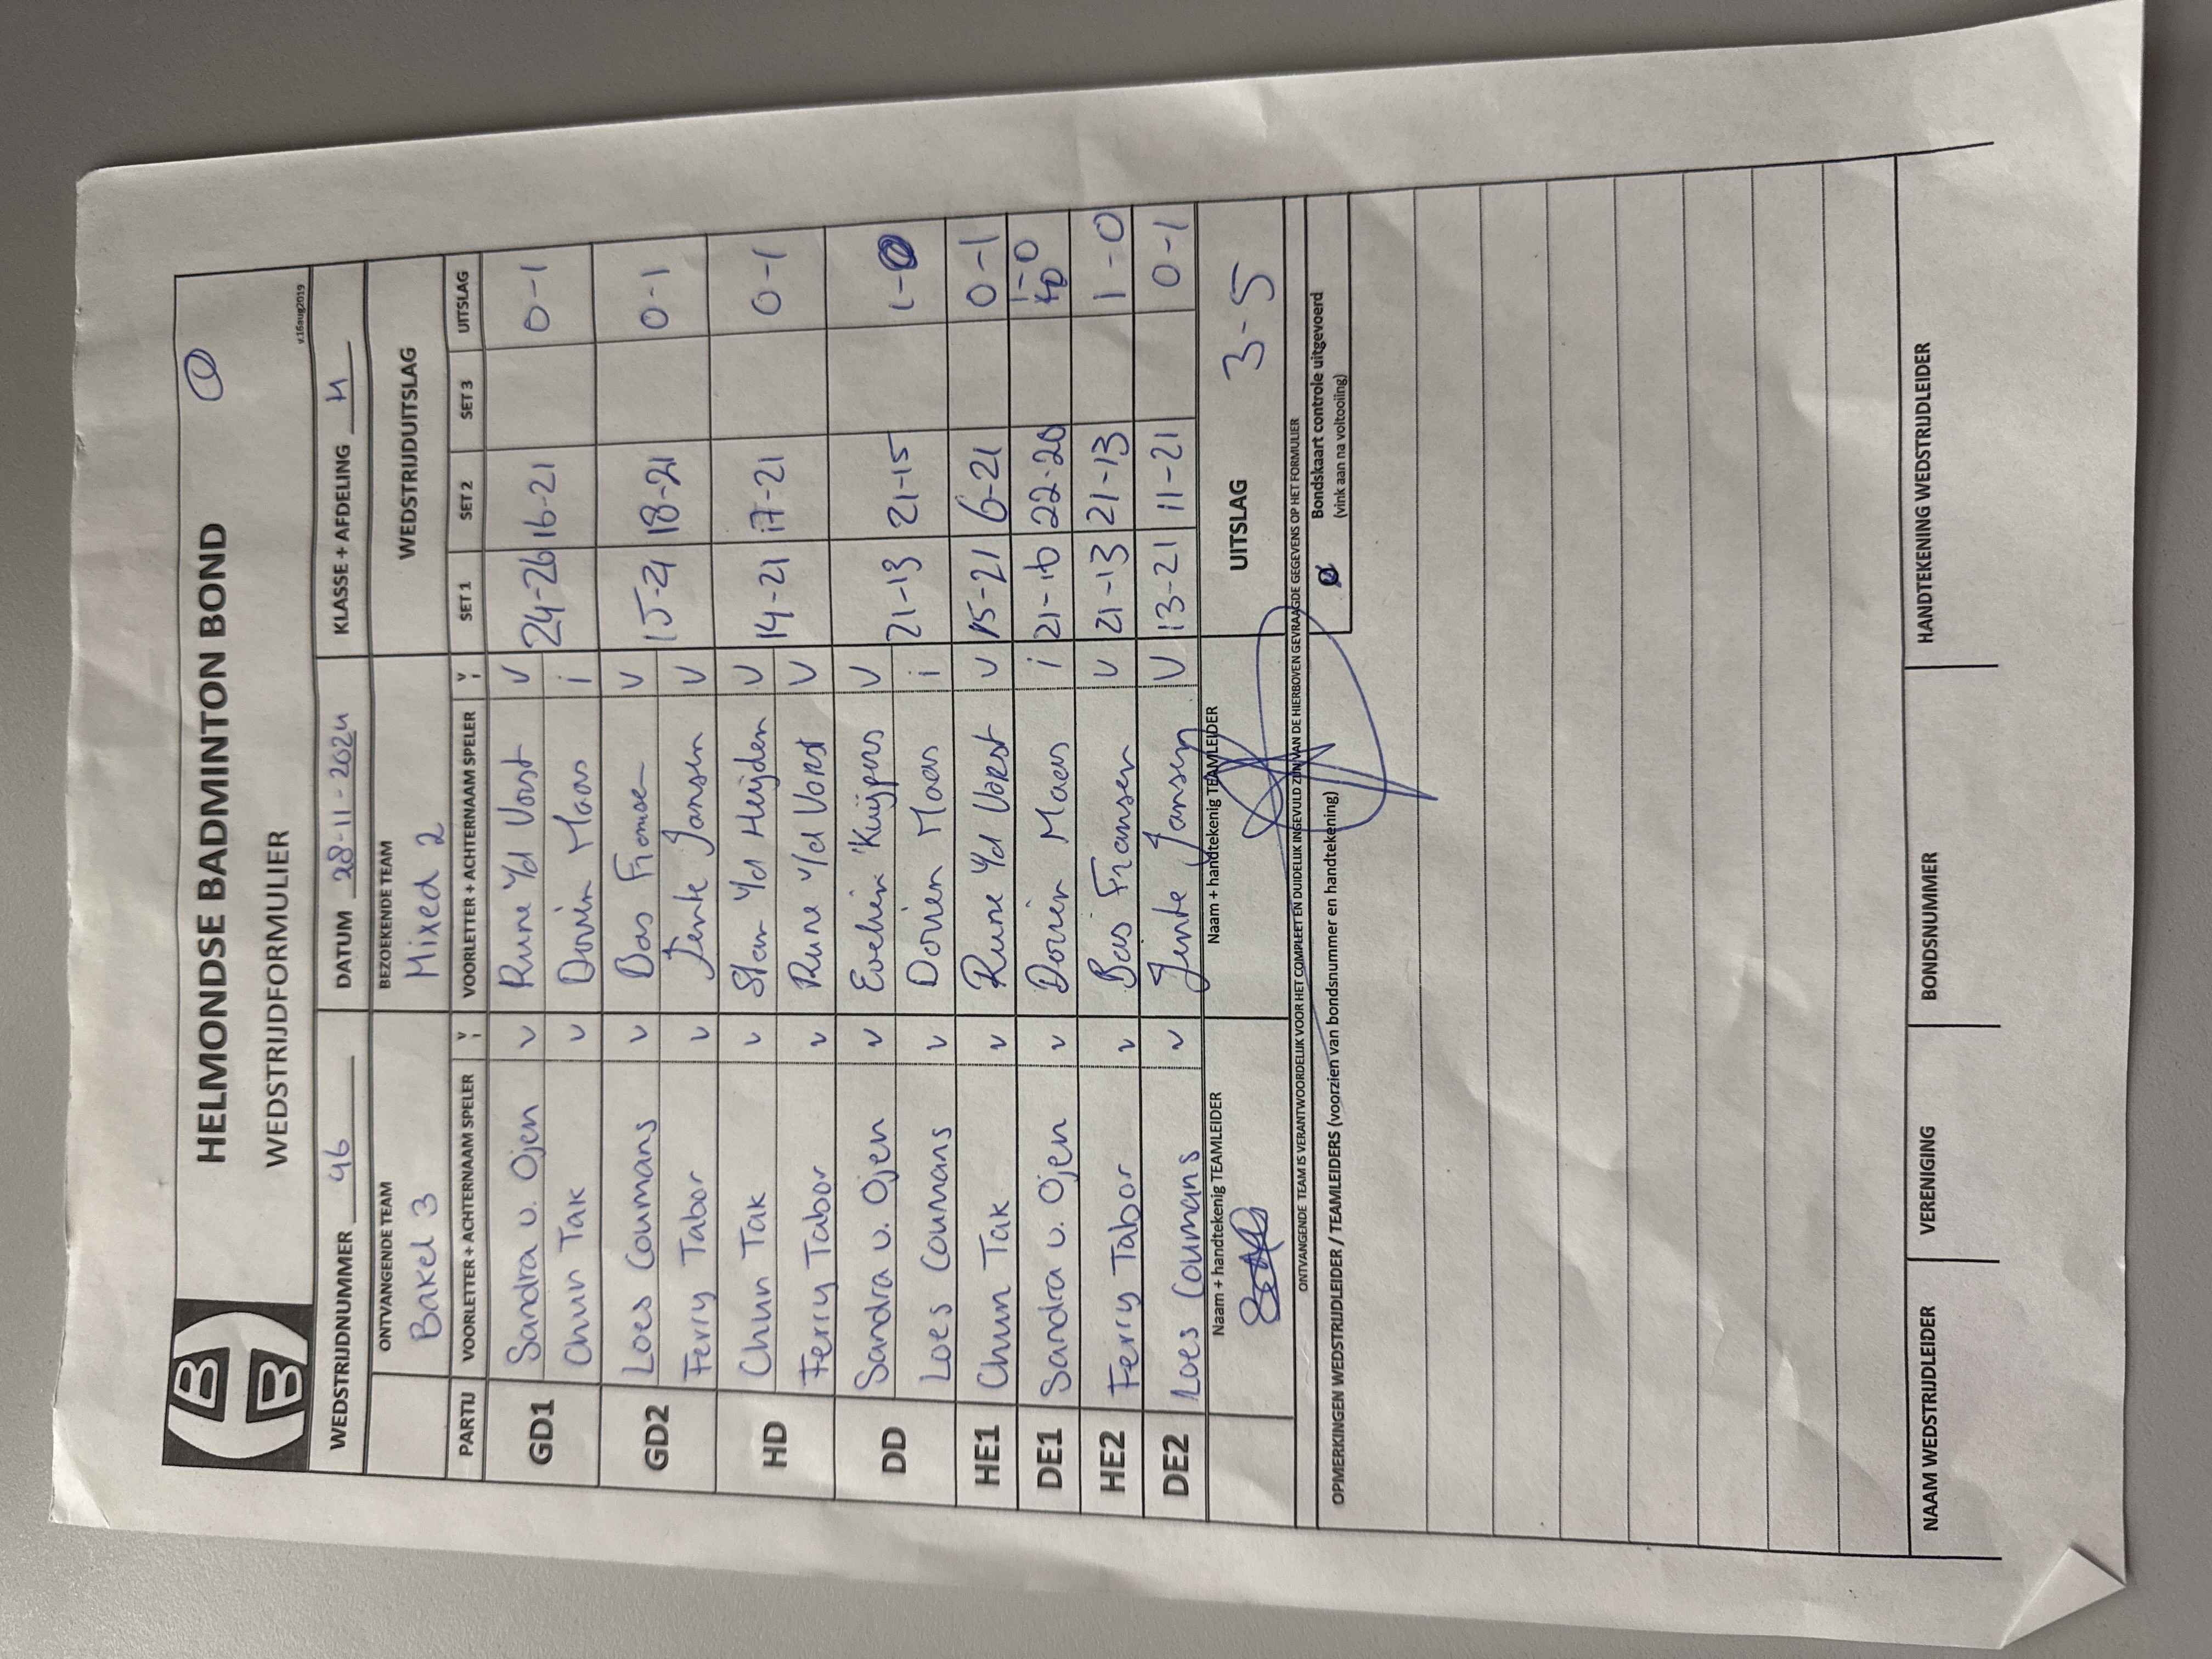 HELMONDSE BADMINTON BOND
WEDSTRIJDFORMULIER
v.16aug2019
WEDSTRIJDNUMMER 46 DATUM 28-11-2024 KLASSE + AFDELING 4
ONTVANGENDE TEAM BEZOEKENDE TEAM WEDSTRIJDUITSLAG
Bakel 3 Mixed 2
PARTIJ VOORLETTER + ACHTERNAAM SPELER V I VOORLETTER + ACHTERNAAM SPELER V I SET 1 SET 2 SET 3 UITSLAG
GD1 Sandra v. Ojen v Rune v/d Vorst v 24-26 16-21 0-1
Chun Tak v Dorien Maas i
GD2 Loes Coumans v Bas Franse v 15-21 18-21 0-1
Ferry Tabor v Jente Jansen v
HD Chun Tak v Stan v/d Heijden v 14-21 17-21 0-1
Ferry Tabor v Rune v/d Vorst v
DD Sandra v. Ojen v Evelien Kuijpers v 21-13 21-15 1-0
Loes Coumans v Dorien Maas i
HE1 Chun Tak v Rune v/d Vorst v 15-21 6-21 0-1
DE1 Sandra v. Ojen v Dorien Maas i 21-16 22-20 1-0
HE2 Ferry Tabor v Bas Fransen v 21-13 21-13 1-0
DE2 Loes Coumans v Jente Jansen v 13-21 11-21 0-1
Naam + handtekenig TEAMLEIDER Naam + handtekenig TEAMLEIDER UITSLAG 3-5
ONTVANGENDE TEAM IS VERANTWOORDELIJK VOOR HET COMPLEET EN DUIDELIJK INGEVULD ZIJN VAN DE HIERBOVEN GEVRAAGDE GEGEVENS OP HET FORMULIER
OPMERKINGEN WEDSTRIJDLEIDER / TEAMLEIDERS (voorzien van bondsnummer en handtekening)
Bondskaart controle uitgevoerd
(vink aan na voltooiing)
NAAM WEDSTRIJDLEIDER VERENIGING BONDSNUMMER HANDTEKENING WEDSTRIJDLEIDER